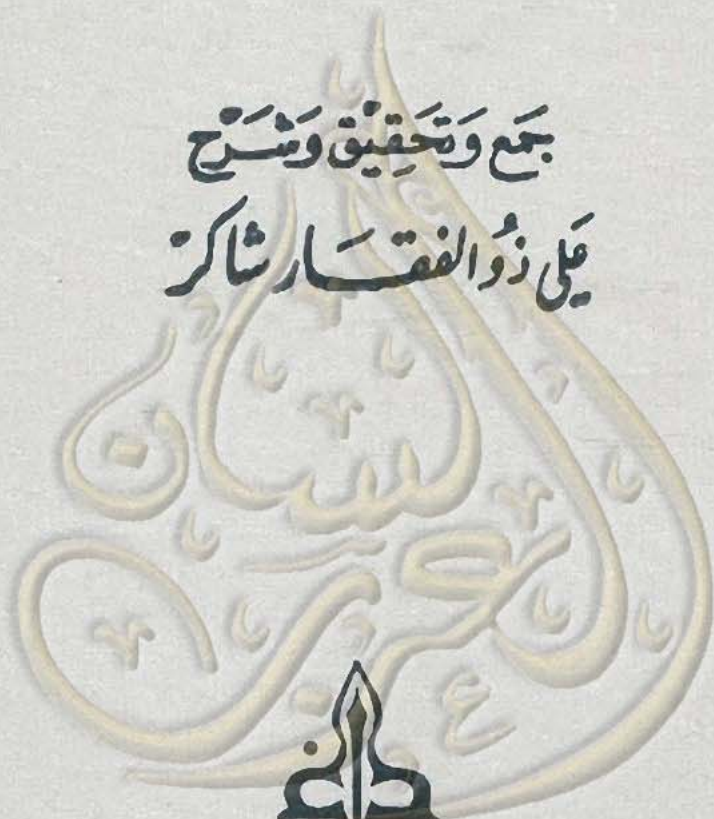 جَمَع وَتَحَقِيْق وَشَرْح
عَلي ذُو الفقار شاكرْ
لسان
العرب